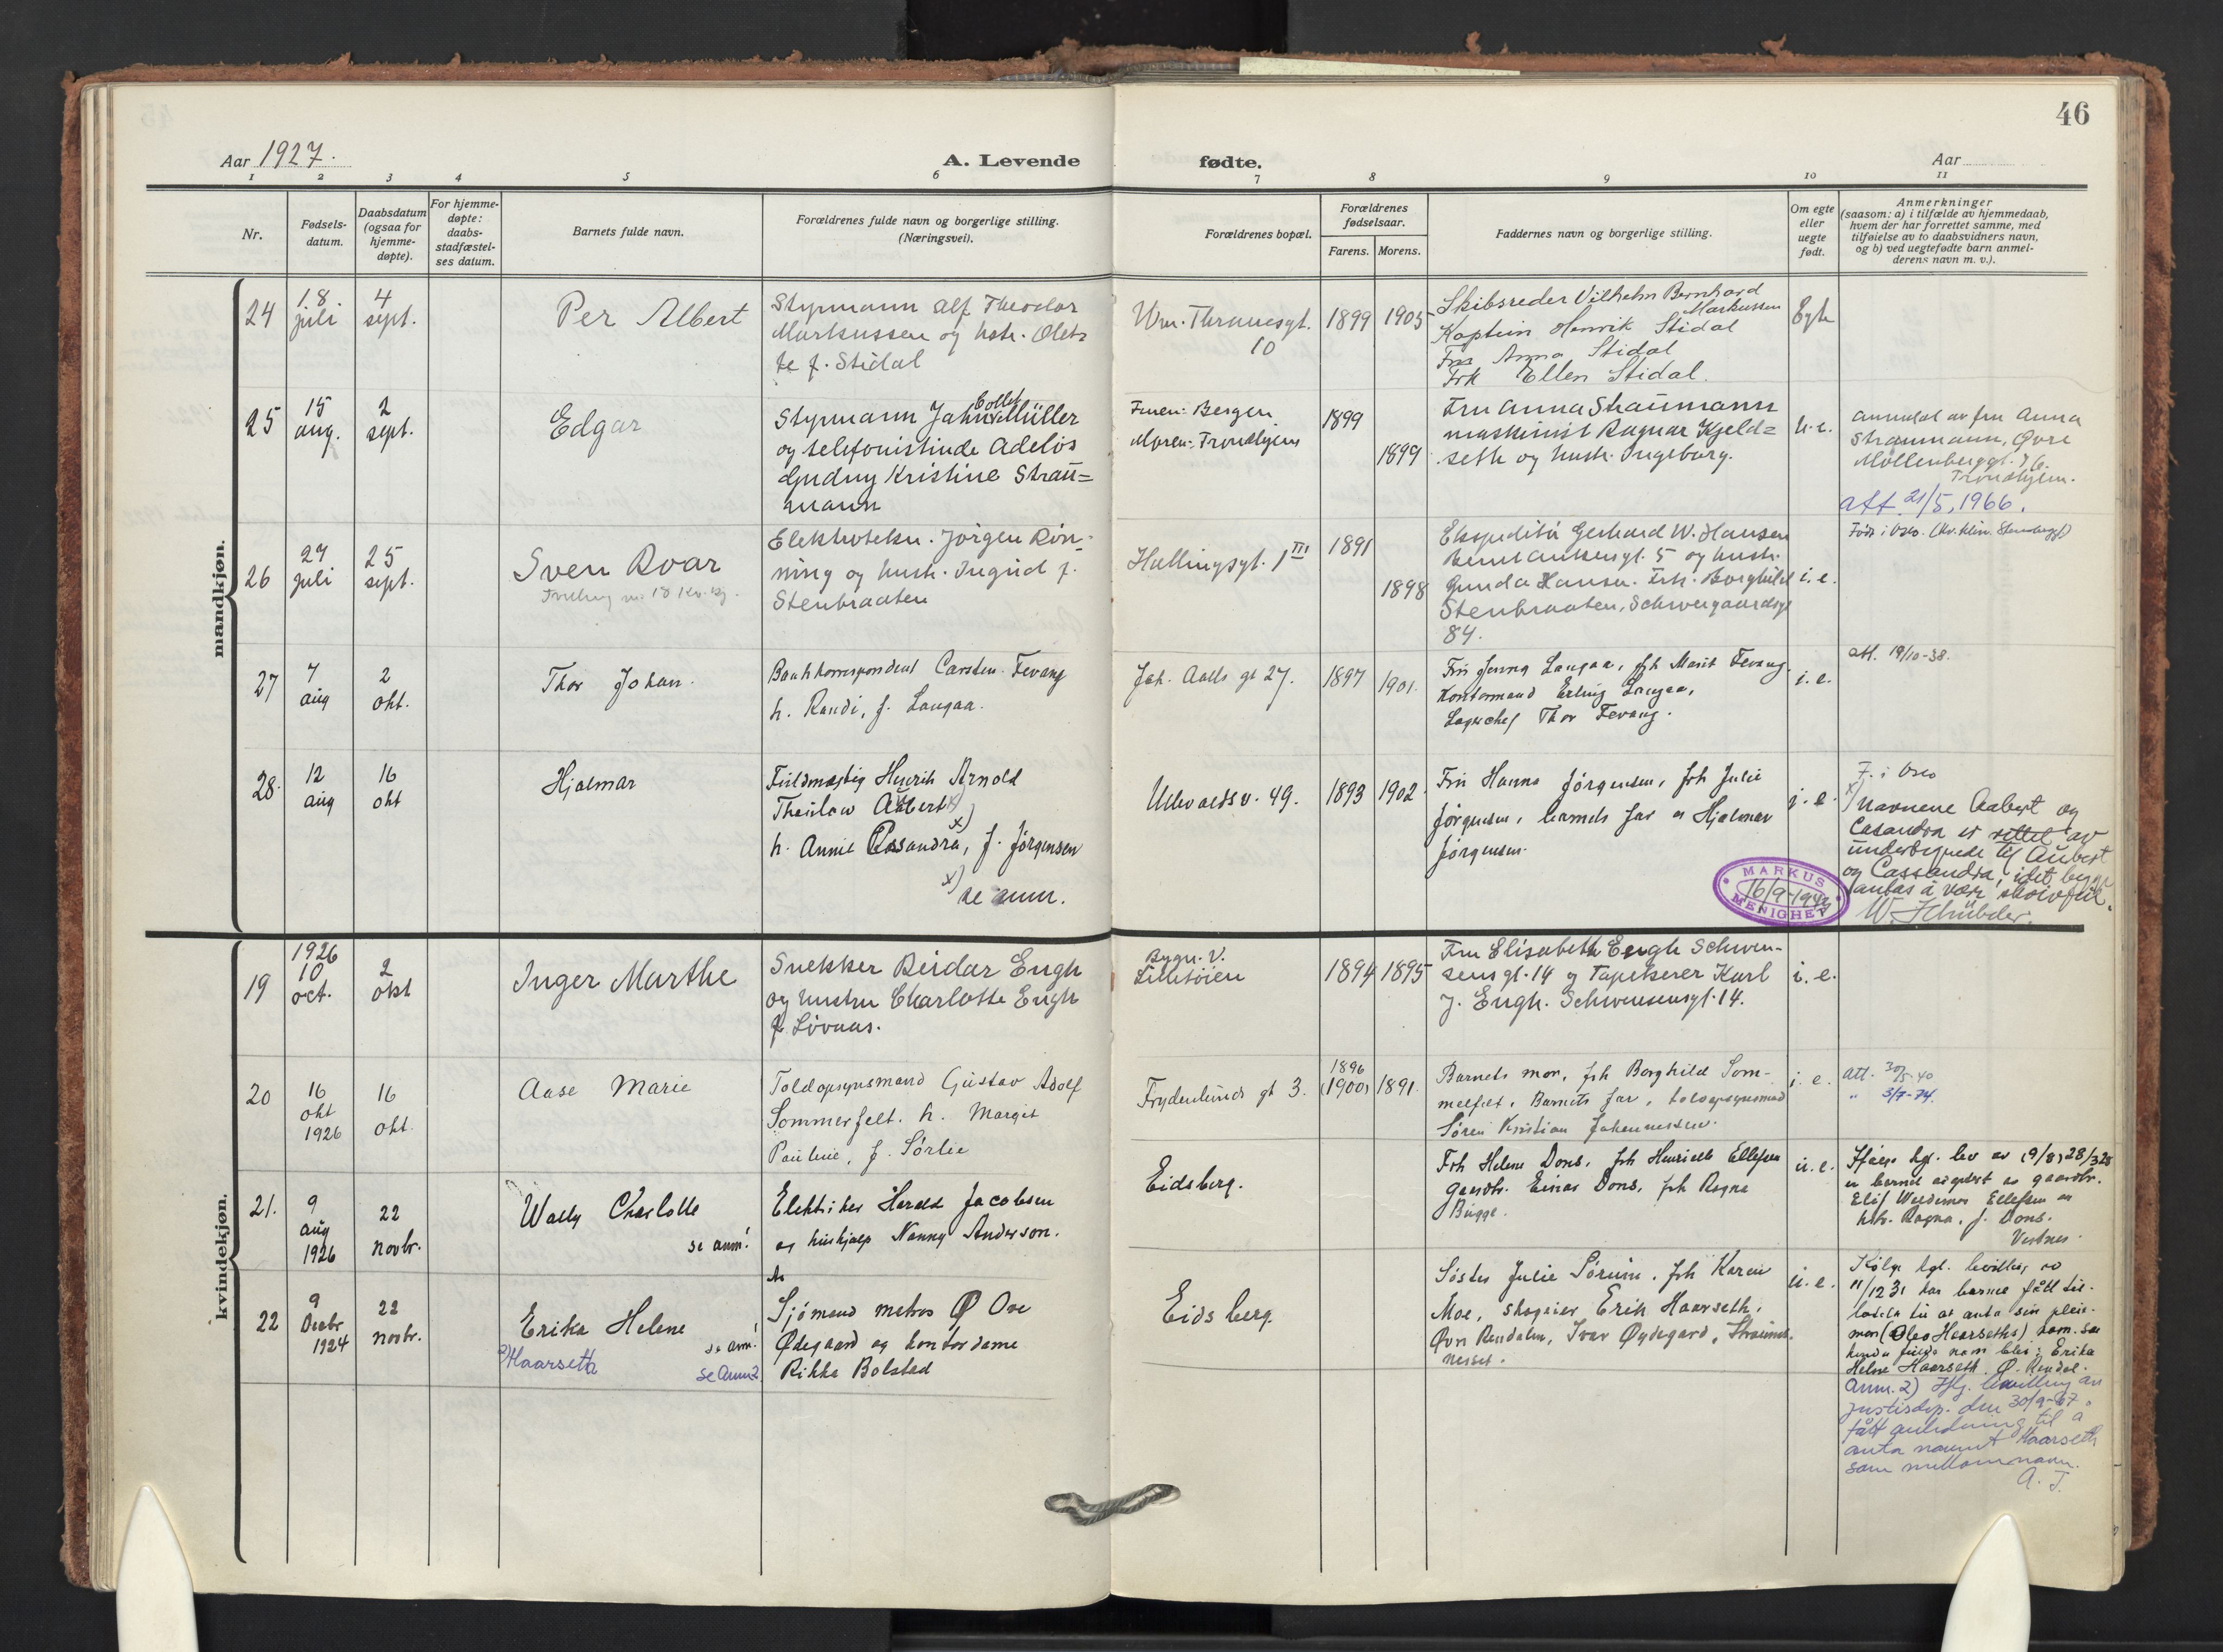 46
Aar 1927.
A. Levende
fødte.
Aar
1 2 3 4 5 6 7 8 9 10 11
Nr.
Fødsels-
datum.
Daabsdatum
(ogsaa for
hjemme-
døpte).
For hjemme-
døpte:
daabs-
stadfæstel-
ses datum.
Barnets fulde navn.
Forældrenes fulde navn og borgerlige stilling.
(Næringsvei).
Forældrenes bopæl.
Forældrenes
fødselsaar.
Farens. Morens.
Faddernes navn og borgerlige stilling.
Om egte
eller
uegte
født.
Anmerkninger
(saasom: a) i tilfælde av hjemmedaab,
hvem der har forrettet samme, med
tilføielse av to daabsvidners navn,
og b) ved uegtefødte barn anmel-
derens navn m. v.).
mandkjøn.
24
18.
juli
4
sept.
Per Albert
Styrmann Alf Theodor
Markussen og hstr. Olet-
te f. Stidal
Wm. Thranesgt.
10
1899 1905
Skibsreder Vilhelm Bernhard
Markussen
Kaptein Henrik Stidal
Fru Anna Stidal
Frk Ellen Stidal.
Egte
25
15
aug.
2
sept.
Edgar
Styrmann Jahn Collet Müller
og telefonistinde Adelös
Gudny Kristine Strau=
mann
Faren: Bergen
Moren: Trondhjem
1899
1899
Fru Anna Straumann
maskinist Ragnar Kjeld=
seth og hustr. Ingeborg.
u.e.
anmeldt av fru Anna
Straumann, Øvre
Möllenberggt. 76
Trondhjem.
att. 21/5, 1966.
26
27
juli
25
sept.
Sven Roar
Elektrotekn. Jørgen Røn-
ning og hustr. Ingrid f.
Stenbraaten
Hallingsgt. 1 III
1891
1898
Ekspeditør Gerhard W. Hansen
Bernt Ankersgt. 5 og hustr.
Gunda Hansen. Frk. Borghild
Stenbraaten, Schweigaardsgt
84.
i.e.
Født i Oslo.
27
7
aug
2
okt.
Thor Johan.
Bankkorrespondent Carsten Fevang
h. Randi, f. Langaa.
Joh. Aalls gt 27.
1897 1901.
Fru Jenny Langaa, frk Marit Fevang.
Kontormand Erling Langaa,
Lagerchef Thor Fevang.
i.e.
att. 19/10-38.
28.
12
aug
16
okt
Hjalmar
Fuldmægtig Henrik Arnold
Thaulow
h. Annie Cassandra, f. Jørgensen
x)
x)
se anm.
Ullevaalsv. 49.
1893 1902.
Fru Hanna Jørgensen, frk Julie
Jørgensen, barnets far og Hjalmar
Jørgensen.
i.e.
F. i Oslo
x) Navnene Aabert og
Casandra er rettet av
undertegnede til Aubert
og Cassandra, idet
antas å være skrivfeil.
W. Schübeler.
MARKUS
16/9-1943
MENIGHET
kvindekjøn.
19
1926
10
oct.
2
okt
Inger Marthe
Snekker Reidar Engh
og hustru Charlotte Engh
f. Løvaas.
Bygn. V.
Lilletøien
1894 1895
Fru Elisabeth Engh Schwen-
sensgt. 14 og Tapetserer Karl
J. Engh. Schwensensgt. 14.
i.e.
20
16
okt
1926
16
okt.
Aase Marie
Toldopsynsmand Gustav Adolf
Sommerfelt. h. Margit
Pauline, f. Sørlie
Frydenlunds gt 3.
1896
(1900) 1891.
Barnets mor, frk Borghild Som-
merfelt, Barnets far, toldopsynsmand
Søren Kristian Johannessen.
i.e.
Att. 30/5-40
" 3/7-74.
21.
9
aug
1926
22
novbr.
Wally Charlotte
se anm!
Elektriker Harald Jacobsen
og hushjælp Nanny Anderson.
Eidsberg.
Frk Helene Dons, frk Henriette Ellefsen
Gaardbr. Einar Dons, frk Ragna
Bugge.
u.e.
Ifølge kgl. bev av (9/8) 28/3 28
er barnet adoptert av gaardbr.
Elif Waldemar Ellefsen og
h. Ragna, f. Dons.
Vestnes.
22
9
Decbr
1924
22
novbr.
Erika Helene
se anm!
2) Haarseth
se Anm 2
Sjömand matros Ove
Ødegaard og kontordame
Rikka Bolstad
Eidsberg
Søster Julie Sørum, frk Karen
Moe, skogeier Erik Haarseth,
Øvre Rendalen, Ivar Øydegard, Straumsnesset.
u.e.
Ifølge kgl. bevilling av
11/12 31 har barnet fått til-
latelse til at anta sin pleie-
mor (Olea Haarseths) navn. Saa
hendes fulde navn blir: Erika
Helene Haarseth, Ø. Rendal.
Anm. 2) Iflg. bevilling av
Justisdep. den 30/9-67
fått anledning til å
anta navnet Haarseth
som mellomnavn.
A. T.